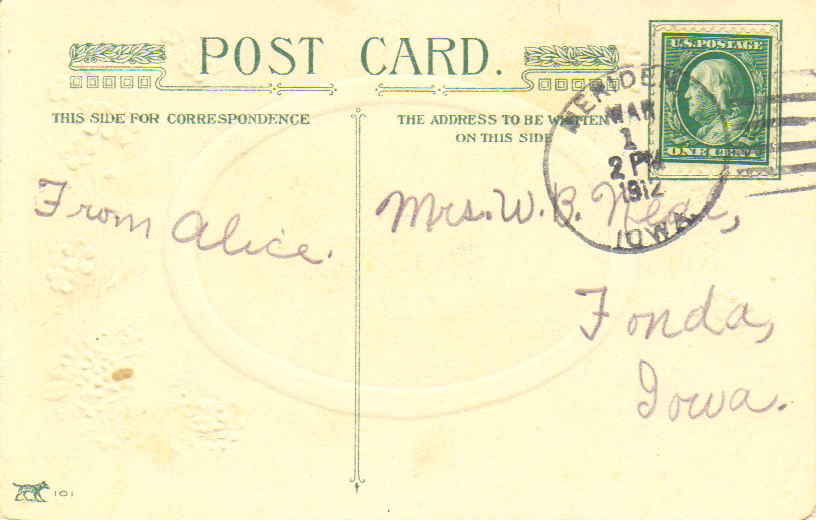 POST CARD.
THIS SIDE FOR CORRESPONDENCE
THE ADDRESS TO BE WRITTEN
ON THIS SIDE
U.S. POSTAGE
ONE CENT
MERIDEN
MAR
1
2 PM
1912
IOWA.
From Alice.
Mrs. W. B. Neal,
Fonda,
Iowa.
101